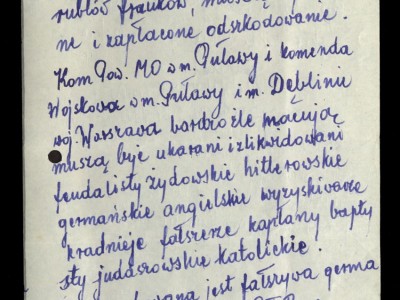 rublów franków, muszą
ne i zapłacone odszkodowanie.
Kom Pow. MO w m. Puławy i komenda
Wojskowa w m. Puławy i m. Dęblinie
woj. Warszawa bardzo źle
muszą być ukarani i zlikwidowani
feudalisty żydowskie hitlerowskie
germańskie angielskie wyzyskiwacze
kradnieje fałszerze kapłany bapty
sty judaszowskie katolickie.
jest fałszywa germa